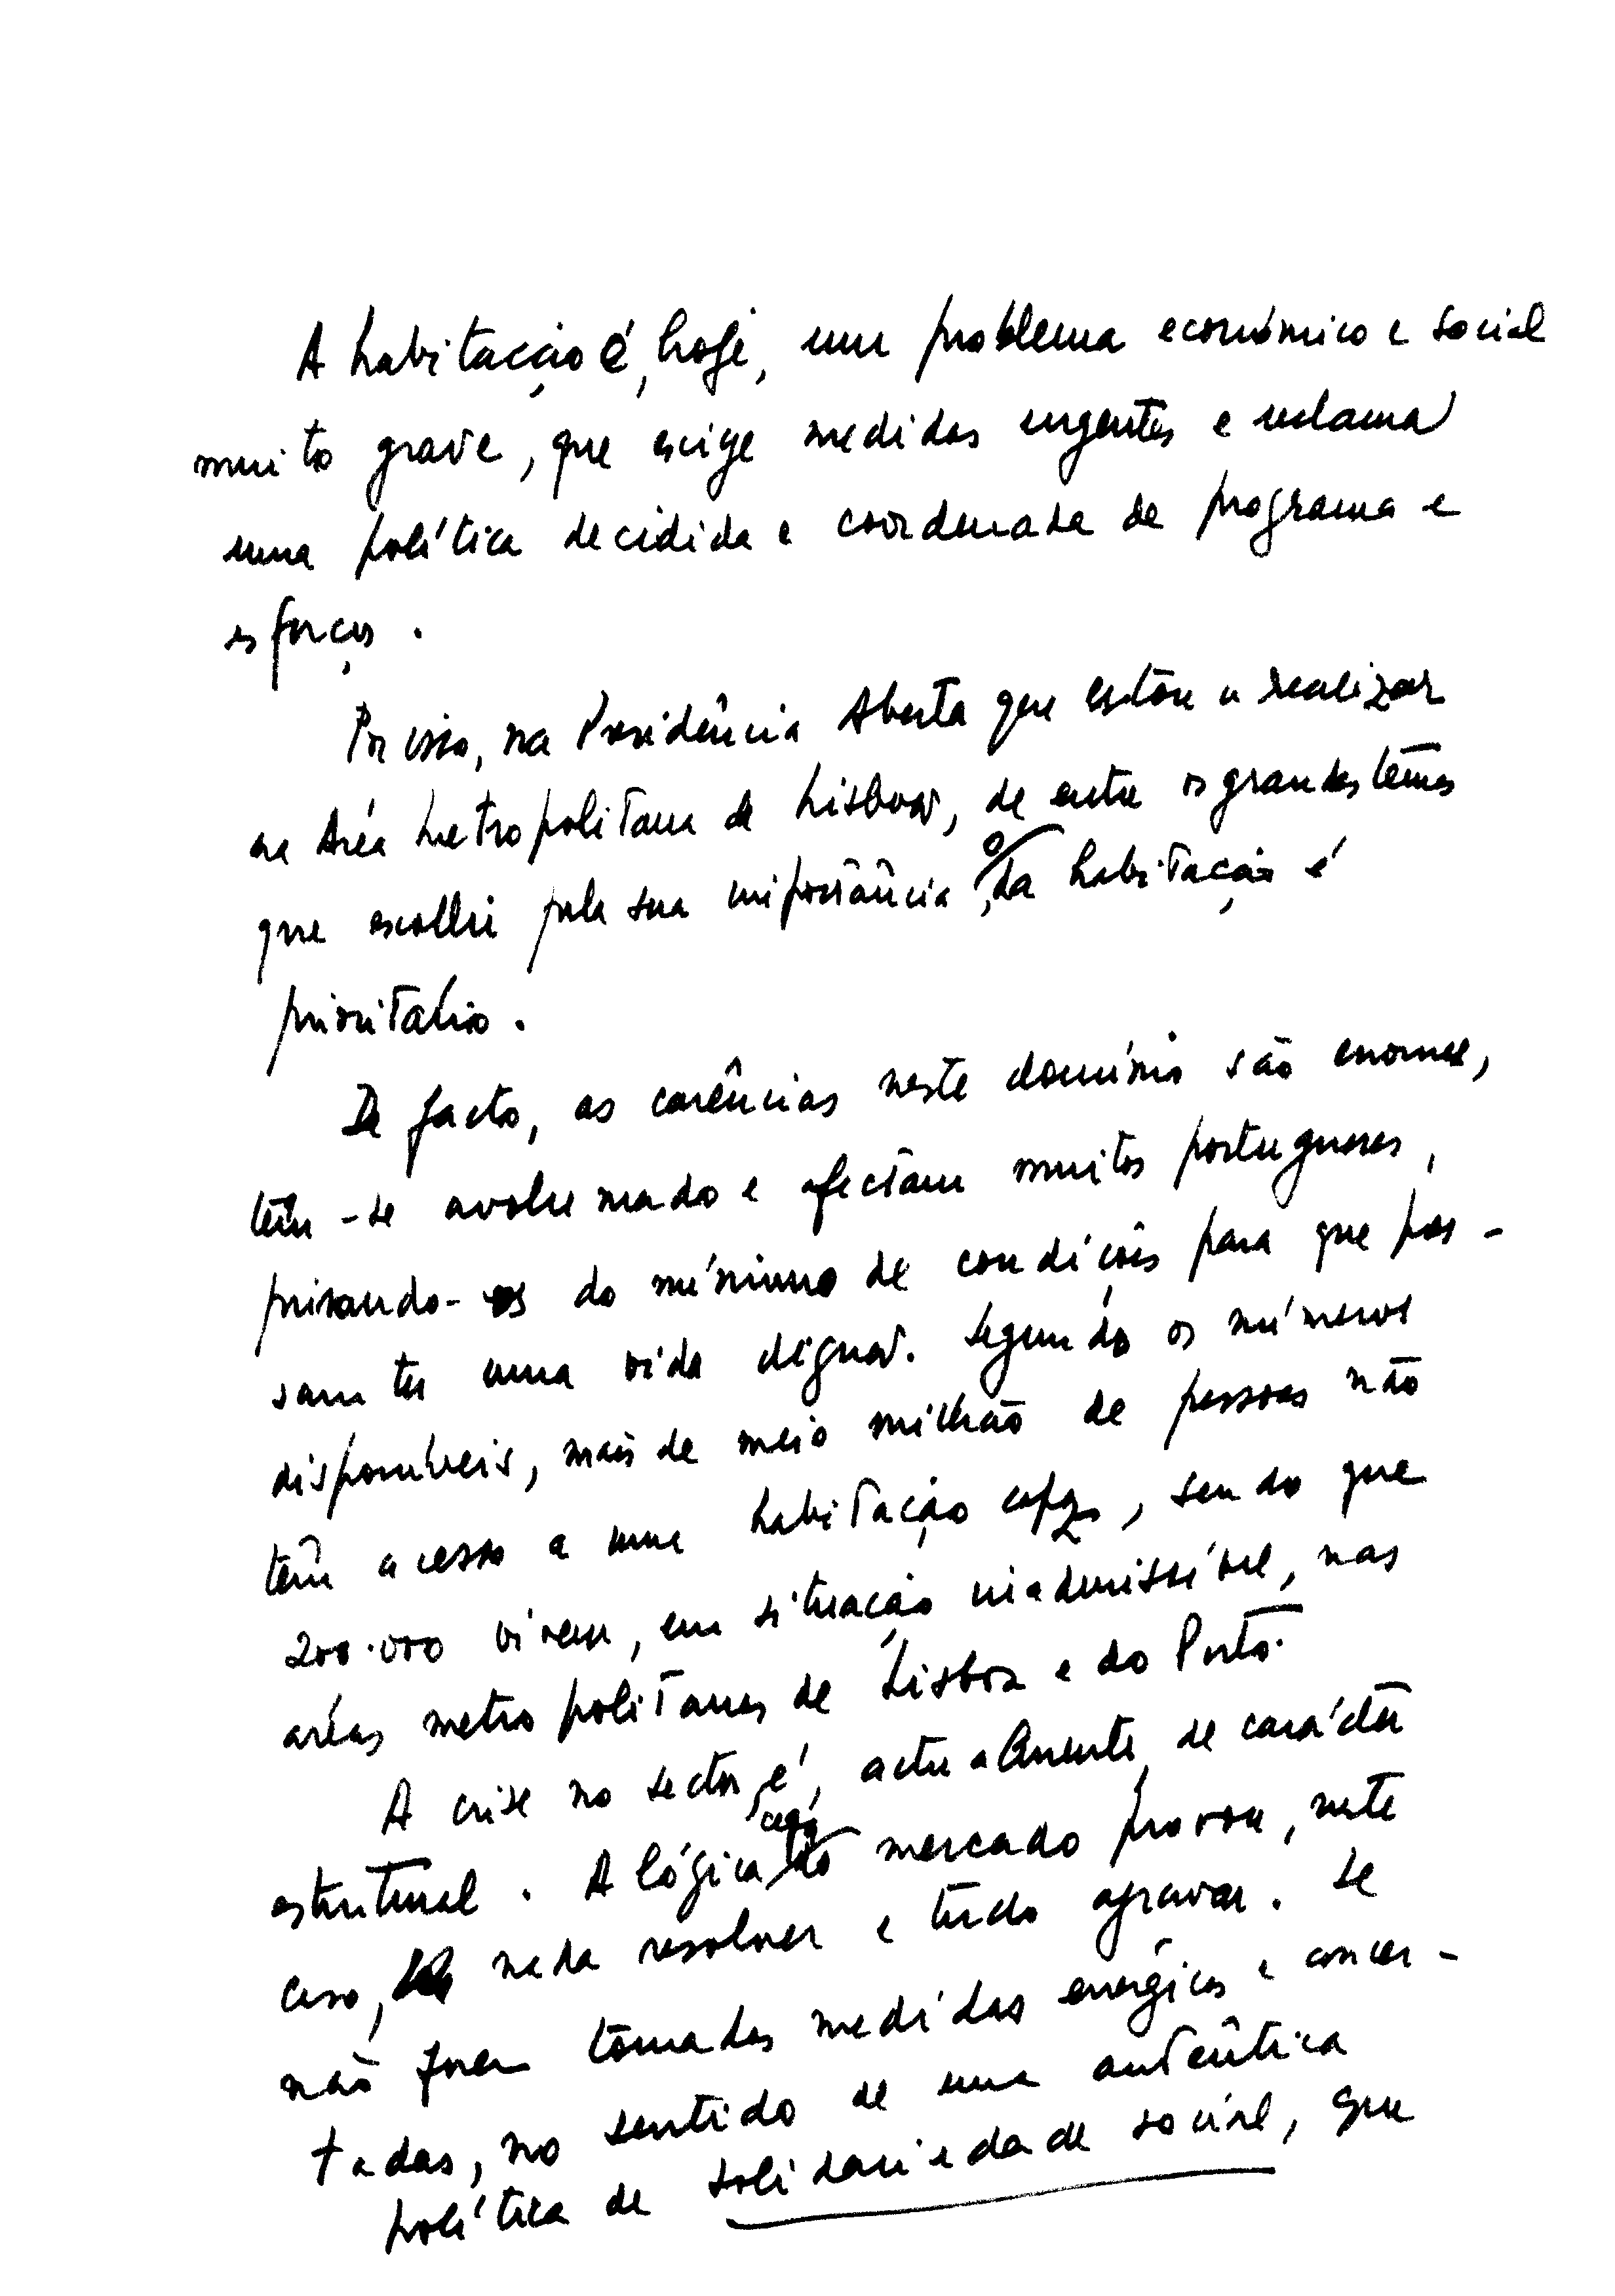 A habitação é, hoje, um problema económico e social
muito grave, que exige medidas urgentes e reclama
uma política decidida e coordenada de programa e
esforços.
Por isso, na Presidência Aberta que estou a realizar
na Área Metropolitana de Lisboa, de entre os grandes temas
que escolhi pela sua importância, o da habitação é
prioritário.
De facto, as carências neste domínio são enormes,
têm-se avolumado e afectam muitos portugueses,
privando-os do mínimo de condições para que pos-
sam ter uma vida digna. Segundo os números
disponíveis, mais de meio milhão de pessoas não
têm acesso a uma habitação capaz, sendo que
200.000 vivem, em situação inadmissível, nas
áreas metropolitanas de Lisboa e do Porto.
A crise no sector é, actualmente, de carácter
estrutural. A lógica cega do mercado provou, neste
caso, nada resolver e tudo agravar. Se
não forem tomadas medidas enérgicas e concer-
tadas, no sentido de uma autêntica
política de solidariedade social, que